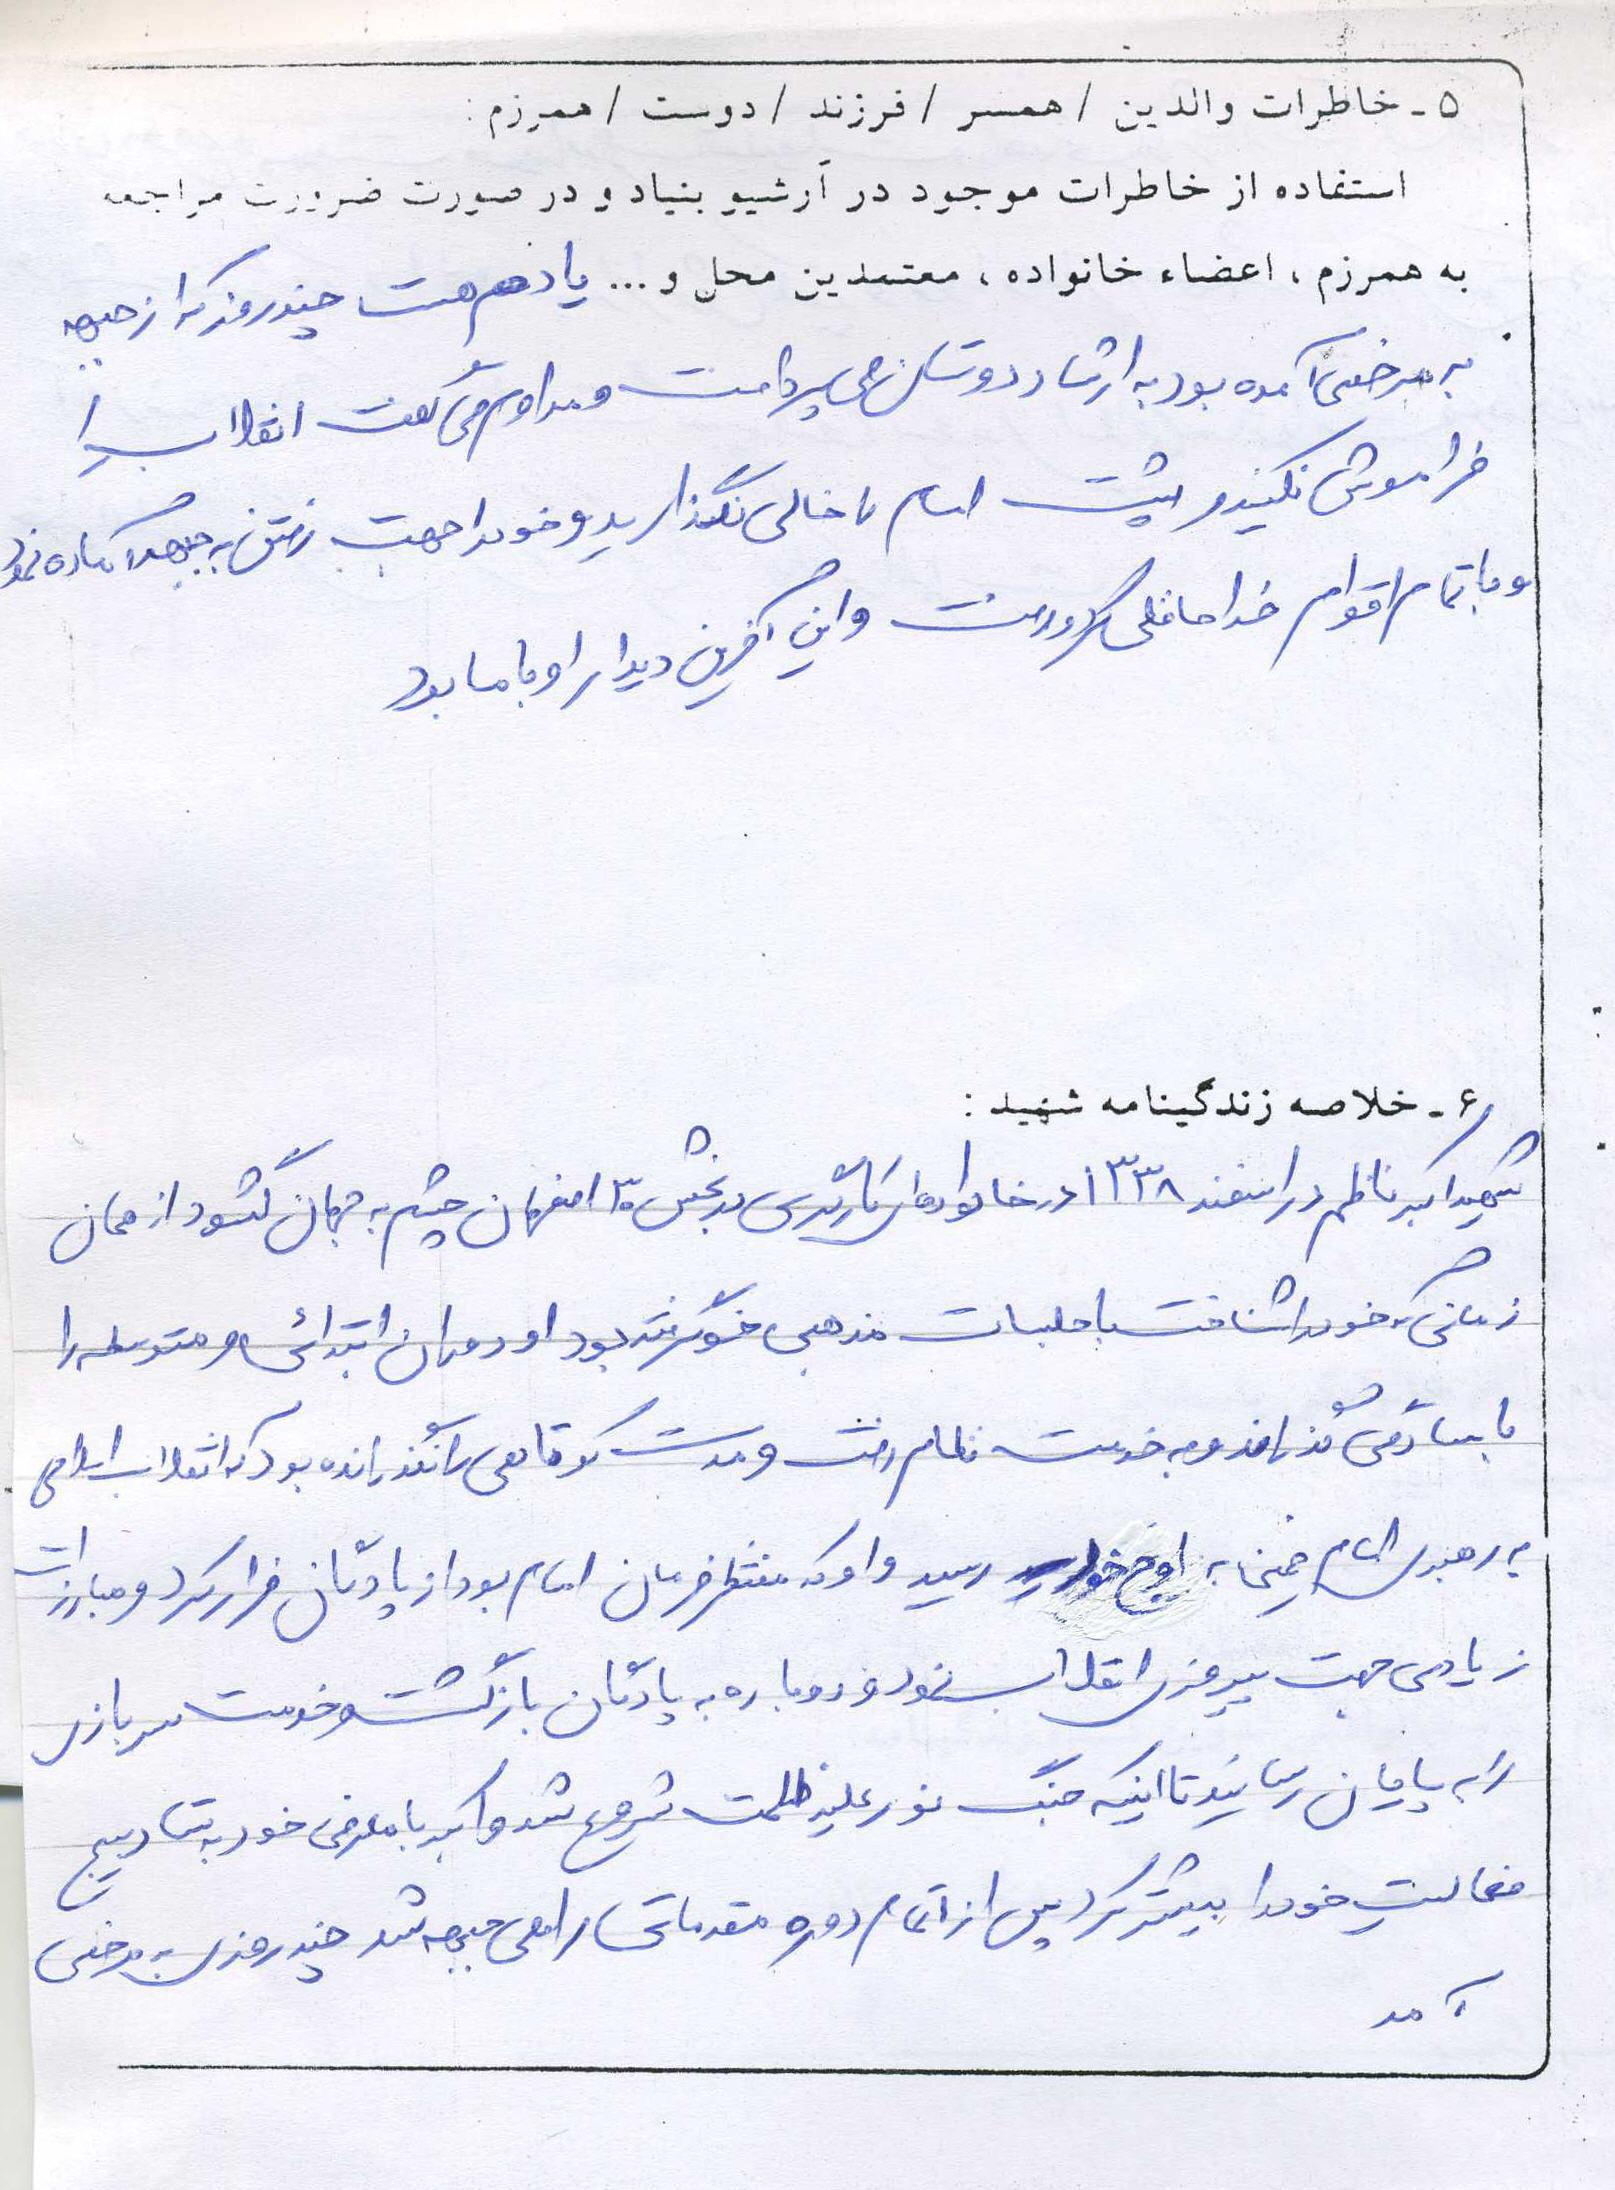 ۵ - خاطرات والدین / همسر / فرزند / دوست / همرزم :
استفاده از خاطرات موجود در آرشیو بنیاد و در صورت ضرورت مراجعه
به همرزم ، اعضاء خانواده ، معتمدین محل و ... یادم هست چند روز که از جبهه
به مرخصی آمده بود به ارشاد دوستان می پرداخت و مداوم می گفت انقلاب را
فراموش نکنید و پشت امام را خالی نگذارید و خود را جهت رفتن به جبهه آماده نمود
و با تمام اقوام خداحافظی کرد و رفت و این آخرین دیدار او با ما بود
۶ - خلاصه زندگینامه شهید :
شهید اکبر ناظم در اسفند ۱۳۳۸ در خانواده‌ای کارگری در بخش ۳ اصفهان چشم به جهان گشود از همان
زمانی که خود را شناخت با جلسات مذهبی خو گرفته بود او دوران ابتدائی و متوسطه را
با سادگی گذراند و به خدمت نظام رفت و مدت کوتاهی را نگذرانده بود که انقلاب اسلامی
به رهبری امام خمینی به اوج خود رسید و او که منتظر فرمان امام بود از پادگان فرار کرد و مبارزات
زیادی جهت پیروزی انقلاب نمود و دوباره به پادگان بازگشت و خدمت سربازی
را به پایان رسانید تا اینکه جنگ نور علیه ظلمت شروع شد و اکبر با معرفی خود به ستاد بسیج
فعالیت خود را بیشتر کرد پس از اتمام دوره مقدماتی راهی جبهه شد چند روزی به مرخصی
آمد